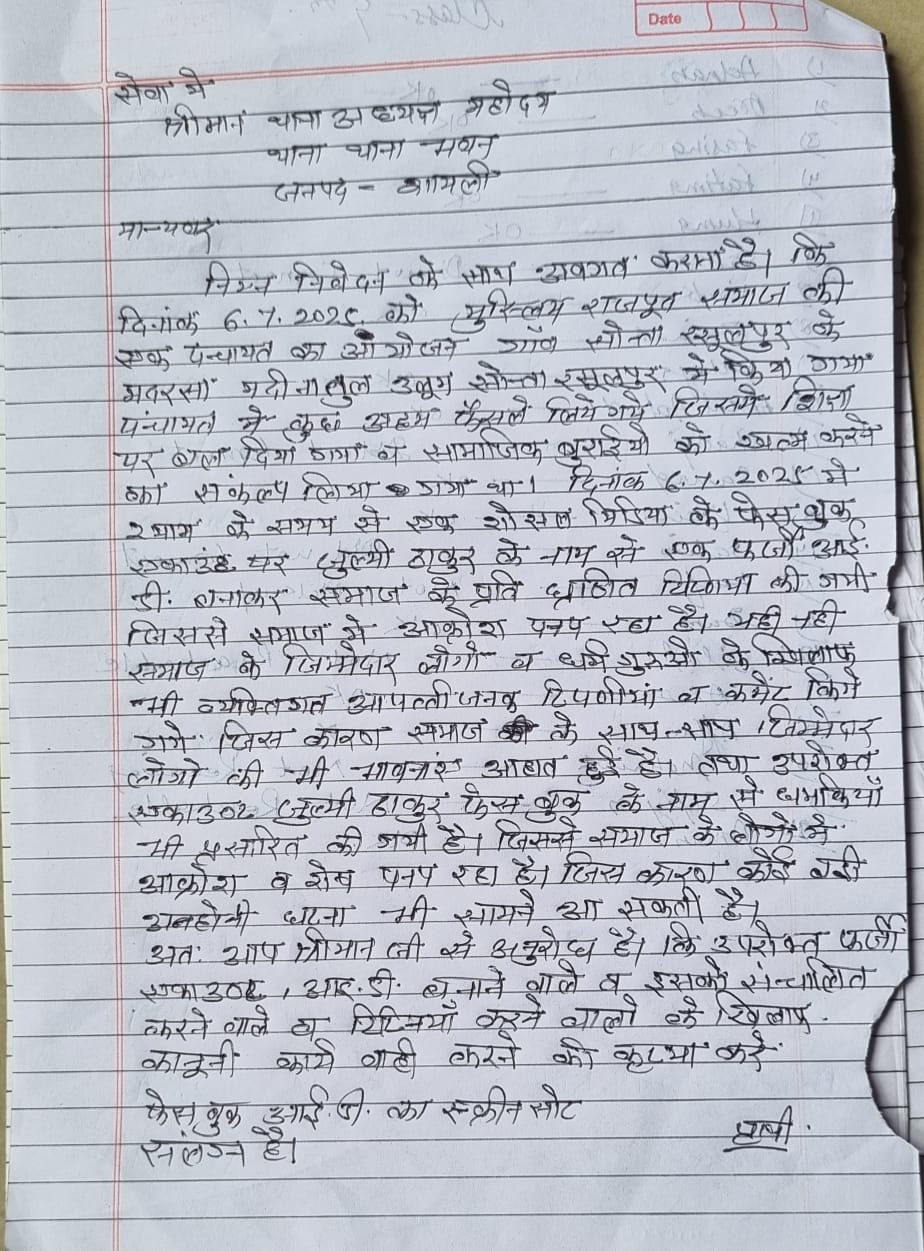 Date
सेवा मे
श्रीमान थाना अध्यक्ष महोदय
थाना थाना भवन
जनपद - शामली
मान्यवर
निम्न निवेदन के साथ अवगत कराना है। कि
दिनांक 6.7.2025 को मुस्लिम राजपूत समाज की
एक पंचायत का आयोजन गाँव सोन्ता रसुलपुर के
मदरसा मदीनातुल उलूम सोन्ता रसूलपुर मे किया गया
पंचायत मे कुछ अहम फैसले लिये गये जिसमे शिक्षा
पर बल दिया गया व सामाजिक बुराईयो को खत्म करने
का संकल्प लिया गया था। दिनांक 6.7.2025 मे
शाम के समय से एक शोसल मिडिया के फेसबुक
एकाउंट पर जुल्मी ठाकुर के नाम से एक फर्जी आई.
डी. बनाकर समाज के प्रति घ्रणित की गयी
जिससे समाज मे आक्रोश पनप रहा है। यही नही
समाज के जिम्मेदार लोगो व धर्म गुरुओ के खिलाफ
भी व्यक्तिगत आपत्तीजनक टिपणीयां व कमेंट किये
गये जिस कारण समाज के साथ-साथ जिम्मेदार
लोगो की भी भावनाएं आहात हुई है। तथा उपरोक्त
एकाउण्ट जुल्मी ठाकुर फेसबुक के नाम से धमकियाँ
भी प्रसारित की गयी है। जिससे समाज के लोगो मे
आक्रोश व रोष पनप रहा है। जिस कारण कोई बडी
अनहोनी घटना भी सामने आ सकती है।
अतः आप श्रीमान जी से अनुरोध है। कि उपरोक्त फर्जी
एकाउण्ट, आई.डी. बनाने वाले व इसको संन्चालित
करने वाले व करने वालो के खिलाफ
कानूनी कार्य वाही करने की कृप्या करे
फेसबुक आई.डी. का स्क्रीन सोट
संलग्न है।
प्रार्थी.